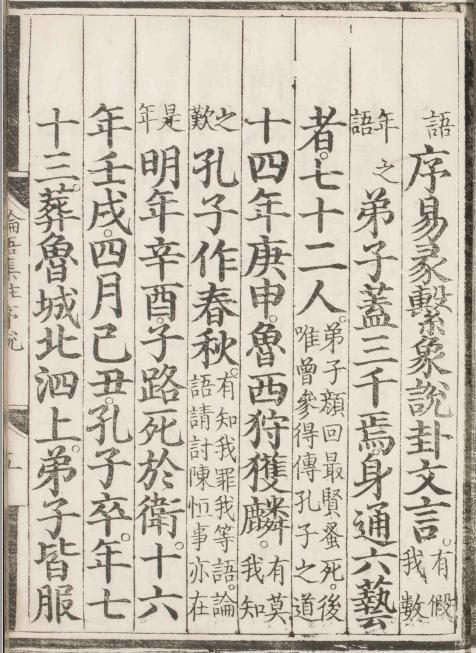 語序易彖繫象說卦文言。有假我數
年之語弟子蓋三千焉。身通六藝
者。七十二人。弟子顏回最賢蚤死。後唯曾參得傳孔子之道
十四年庚申。魯西狩獲麟。有莫我知
之歎孔子作春秋。有知我罪我等語。論語請討陳恒事亦在
是年明年辛酉。子路死於衛。十六
年壬戌。四月己丑。孔子卒。年七
十三。葬魯城北泗上。弟子皆服
論語集註序說
五